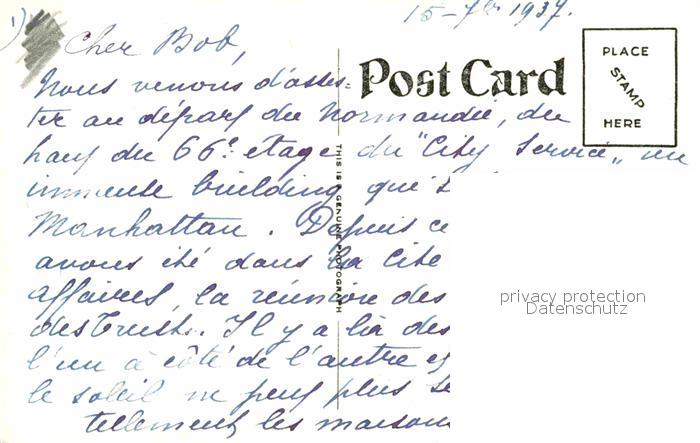 1)
15-7bre 1937.
Cher Bob,
Nous venons d'assis-
ter au départ du Normandie, du
haut du 66e étage du "City Service", un
immense building qui s
Manhattan. Depuis ce
avons été dans la Cité
affaires, la réunion des
des trusts. Il y a là des
l'un à côté de l'autre et
le soleil ne peut plus se
tellement les maisons
Post Card
PLACE
STAMP
HERE
THIS IS A GENUINE PHOTOGRAPH
privacy protection
Datenschutz